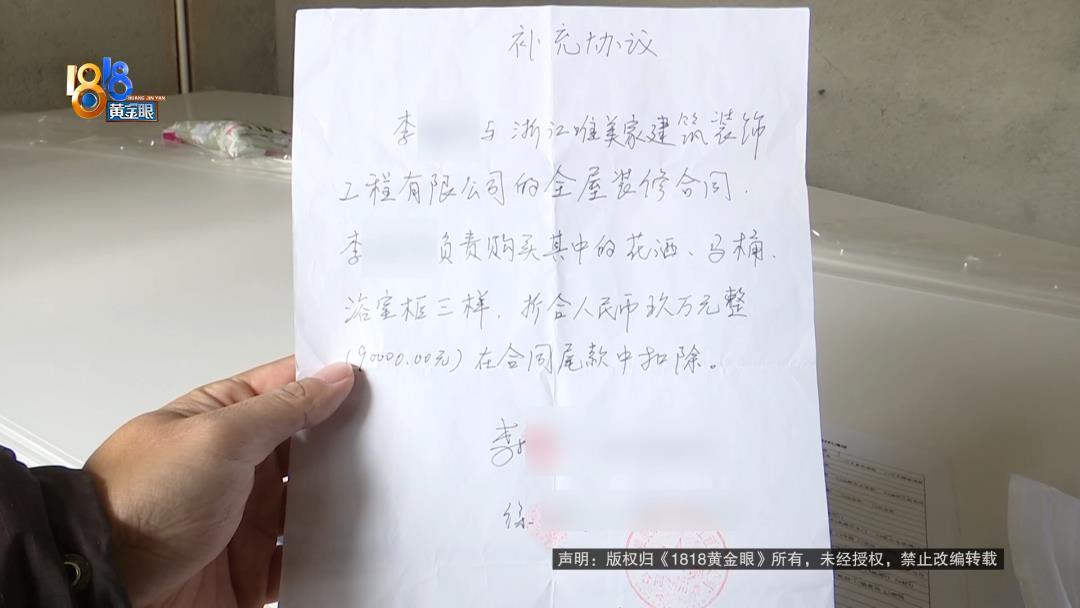 1818
HUANG JIN YAN
黄金眼
补充协议
李 与浙江维美家建筑装饰
工程有限公司的全屋装修合同.
李 负责购买其中的花洒、马桶.
浴室柜三样，折合人民币玖万元整
(90000.00元)在合同尾款中扣除。
李
徐
声明：版权归《1818黄金眼》所有，未经授权，禁止改编转载